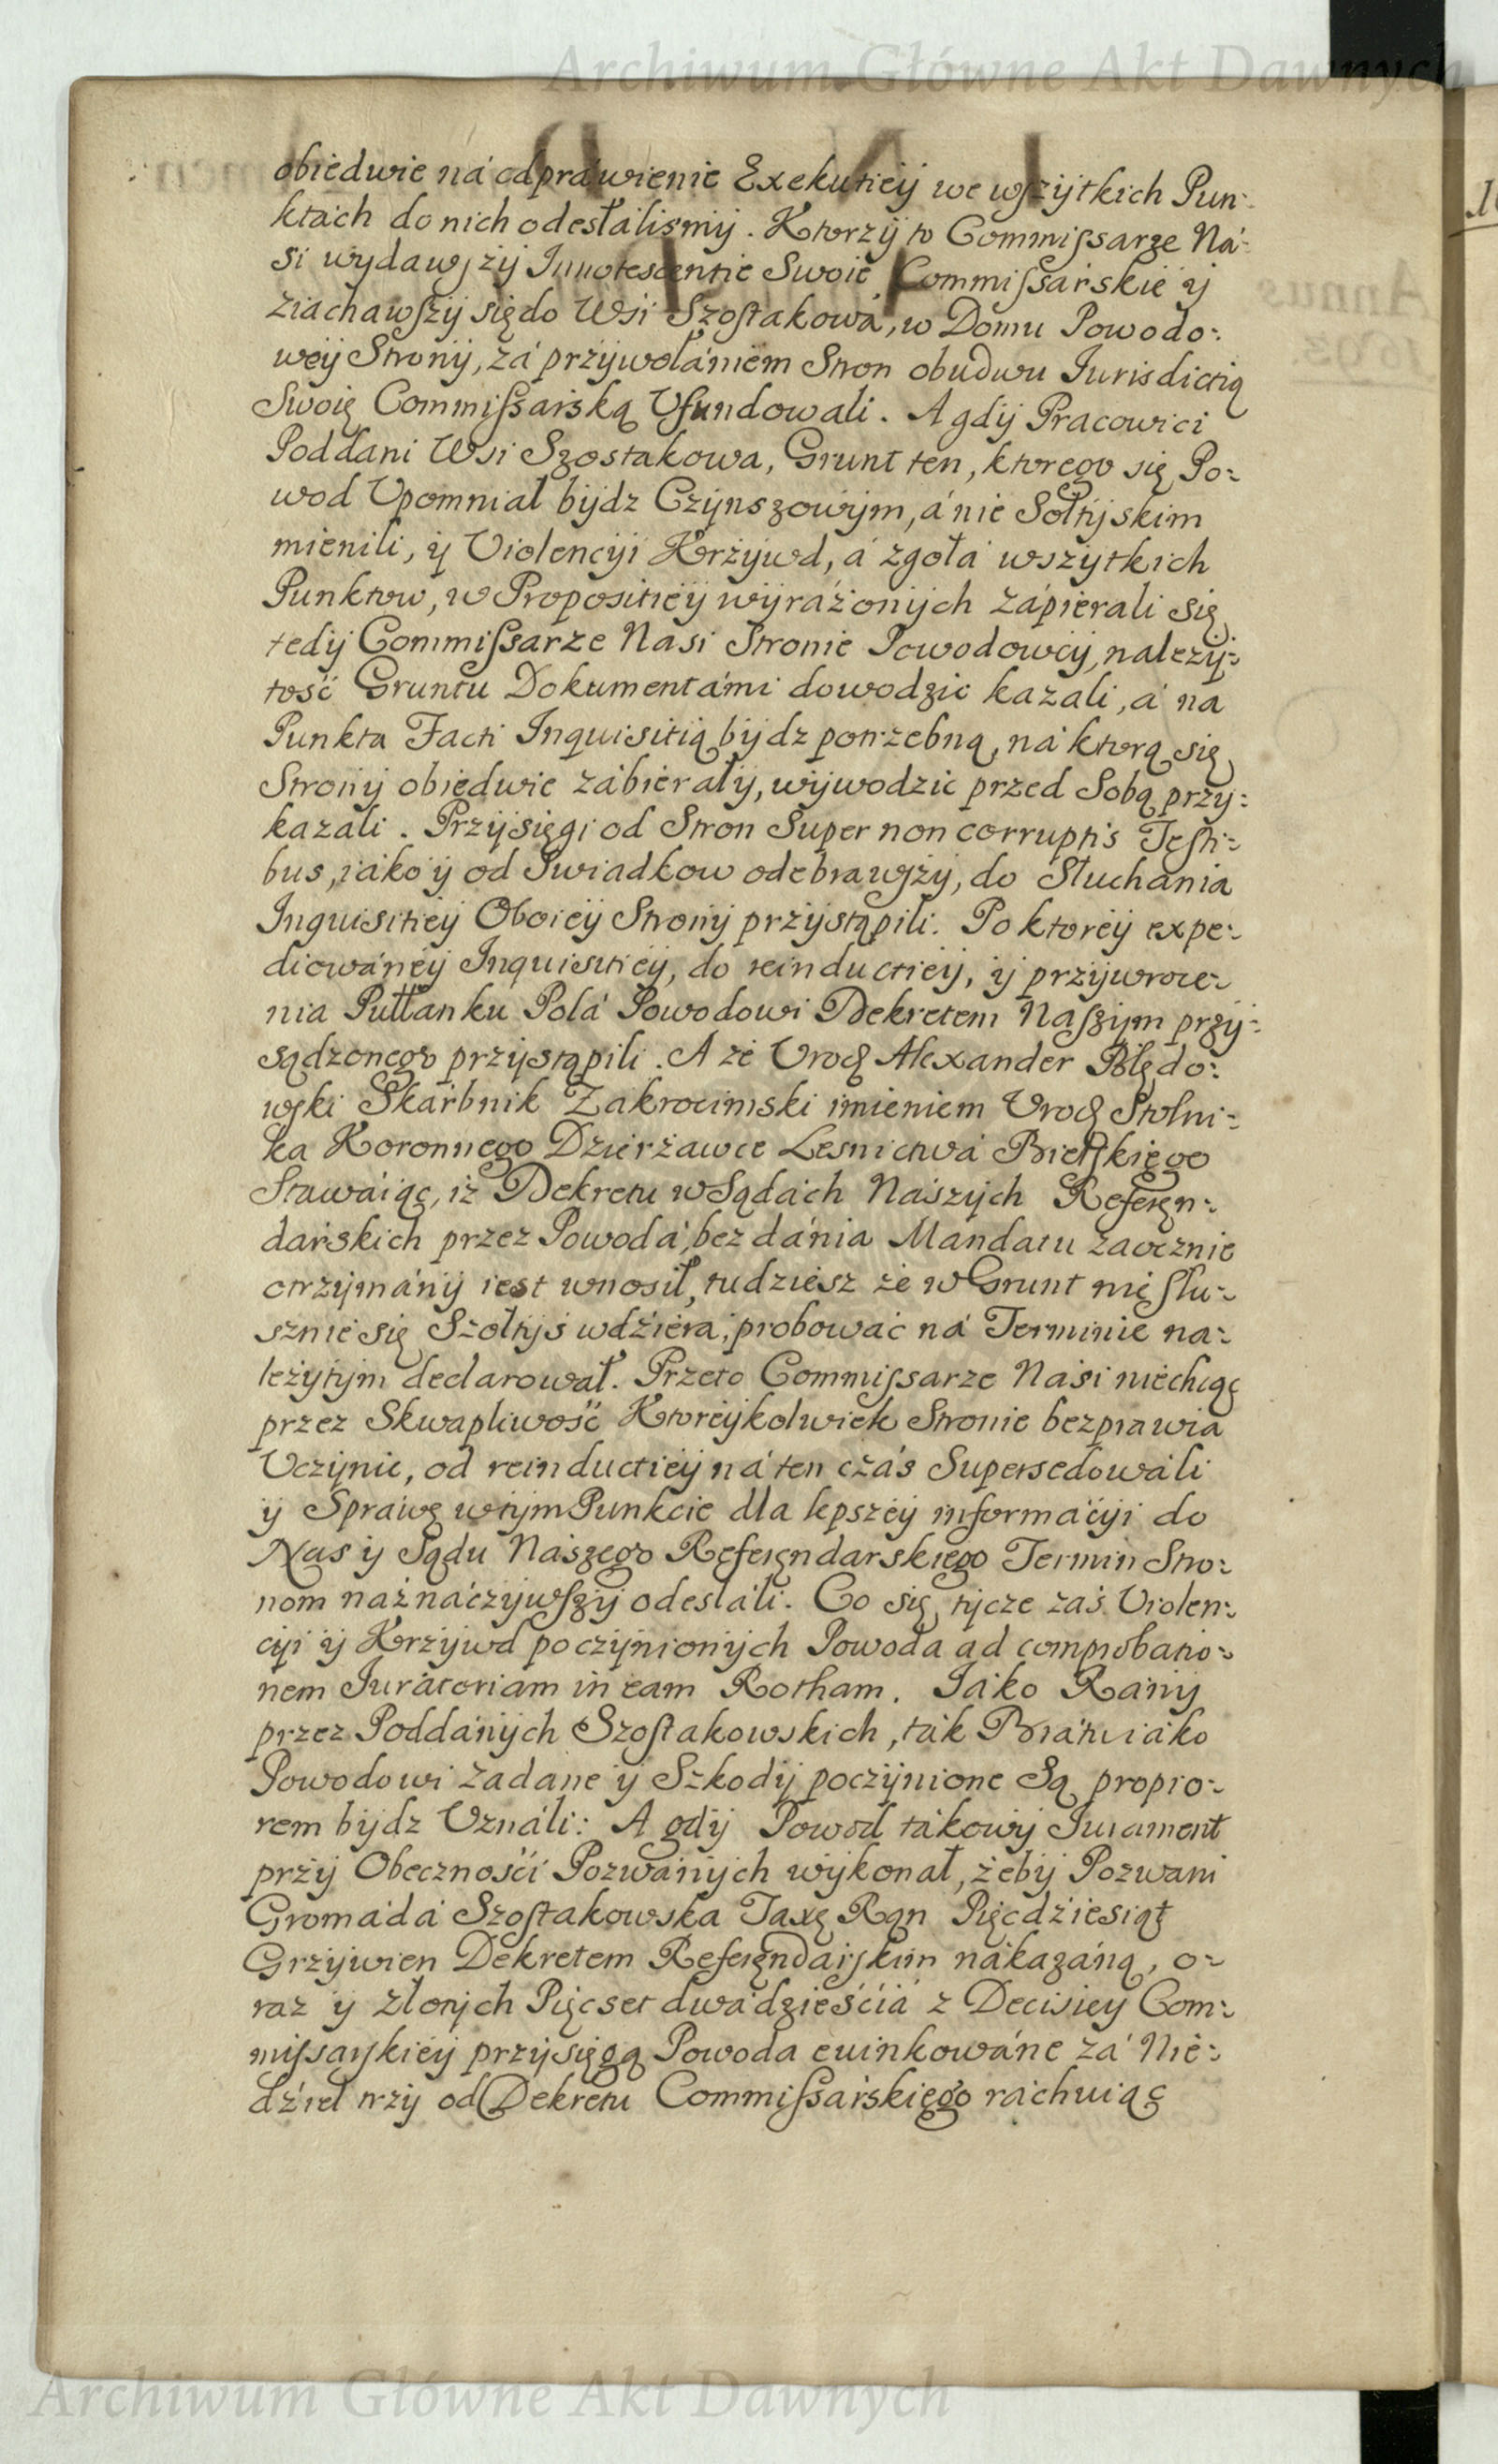 Archiwum Główne Akt Dawnych
obiedwie ná odprawienie Exekutiey we wszytkich Pun-
ktách do nich odesłálismy. Ktorzy to Commissarze Ná-
si wydawszy Innotescentie Swoie Commissárskie y
ziachawszy się do Wsi Szostakowá, w Domu Powodo-
wey Strony, zá przywołániem Stron obudwu Iurisdictią
Swoię Commissárską Ufundowali. A gdy Pracowici
Poddani Wsi Szostakowa, Grunt ten, ktorego się Po-
wod Upomniał bydz Czynszowym, á nie Sołtyskim
mienili, y Violencyi Krzywd, á zgołá wszytkich
Punktow, w Propositiey wyráżonych zápierali się,
tedy Commissarze Nasi Stronie Powodowey, należy-
tość Gruntu Dokumentámi dowodzic kazali, á na
Punkta Facti Inquisitią bydz potrzebną, ná ktorą się
Strony obiedwie zábierały, wywodzic przed Sobą przy-
kazali. Przysięgi od Stron Super non corruptis Testi-
bus, iáko y od Swiadkow odebrawszy, do Słuchánia
Inquisitiey Oboiey Strony przystąpili. Po ktorey expe-
diowáney Inquisitiey, do reinductiey, y przywroce-
nia Pułłanku Polá Powodowi Dekretem Naszym przy-
sądzonego przystąpili. A że Urodz Alexander Błędo-
wski Skárbnik Zakrocimski imieniem Urodz Stolni-
ka Koronnego Dzierżawce Lesnictwá Bielskiego
Stawáiąc, iż Dekretu w Sądách Nászych Referen-
dárskich przez Powodá, bez dánia Mandatu záocznie
otrzymány iest wnosił, tudziesz że w Grunt nie słu-
sznie się Szołtys wdźiera, probowác ná Terminie na-
leżytym declarował. Przeto Commissarze Nási niechcąc
przez Skwapliwość Ktoreykolwiek Stronie bezprawia
Uczynic, od reinductiey ná ten czás Supersedowáli
y Sprawę w tym Punkcie dla lepszey informácyi do
Nas y Sądu Nászego Referendarskiego Termin Stro-
nom náznáczywszy odesláli. Co się tycze zaś Violen-
cyi y Krzywd poczynionych Powoda ad comprobatio-
nem Iurátoriam in eam Rotham. Iáko Rány
przez Poddánych Szostakowskich, ták Brátu iáko
Powodowi zadane y Szkody poczynione Są propio-
rem bydz Uználi: A gdy Powod tákowy Iurament
przy Obecnośći Pozwánych wykonał, żeby Pozwani
Gromádá Szostakowska Taxę Ran Pięcdźiesiąt
Grzywien Dekretem Referendarskim nákazáną, o-
raz y złotych Pięcset dwádzieśćiá z Decisiey Com-
missarskiey przysięgą Powoda ewinkowáne zá Nie-
dźiel trzy od Dekretu Commissárskiego ráchuiąc
Archiwum Główne Akt Dawnych